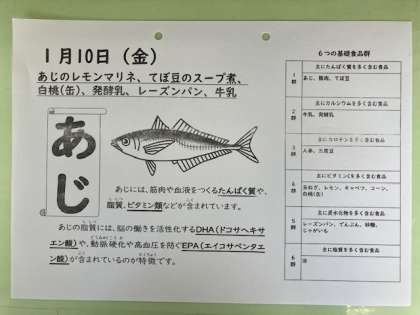 1月10日（金）
あじのレモンマリネ、てぼ豆のスープ煮、
白桃(缶)、発酵乳、レーズンパン、牛乳
あじ
あじには、筋肉や血液をつくるたんぱく質や、
脂質、ビタミン類などが含まれています。
あじの脂質には、脳の働きを活性化するDHA(ドコサヘキサ
エン酸）や、動脈硬化や高血圧を防ぐEPA(エイコサペンタエ
ン酸）が含まれているのが特徴です。
6つの基礎食品群
1群
主にたんぱく質を多く含む食品
あじ、豚肉、てぼ豆
2群
主にカルシウムを多く含む食品
牛乳、発酵乳
3群
主にカロテンを多く含む食品
人参、
4群
主にビタミンCを多く含む食品
玉ねぎ、レモン、キャベツ、コーン、
白桃(缶)
5群
主に炭水化物を多く含む食品
レーズンパン、でんぷん、砂糖、
じゃがいも
6群
主に脂質を多く含む食品
油